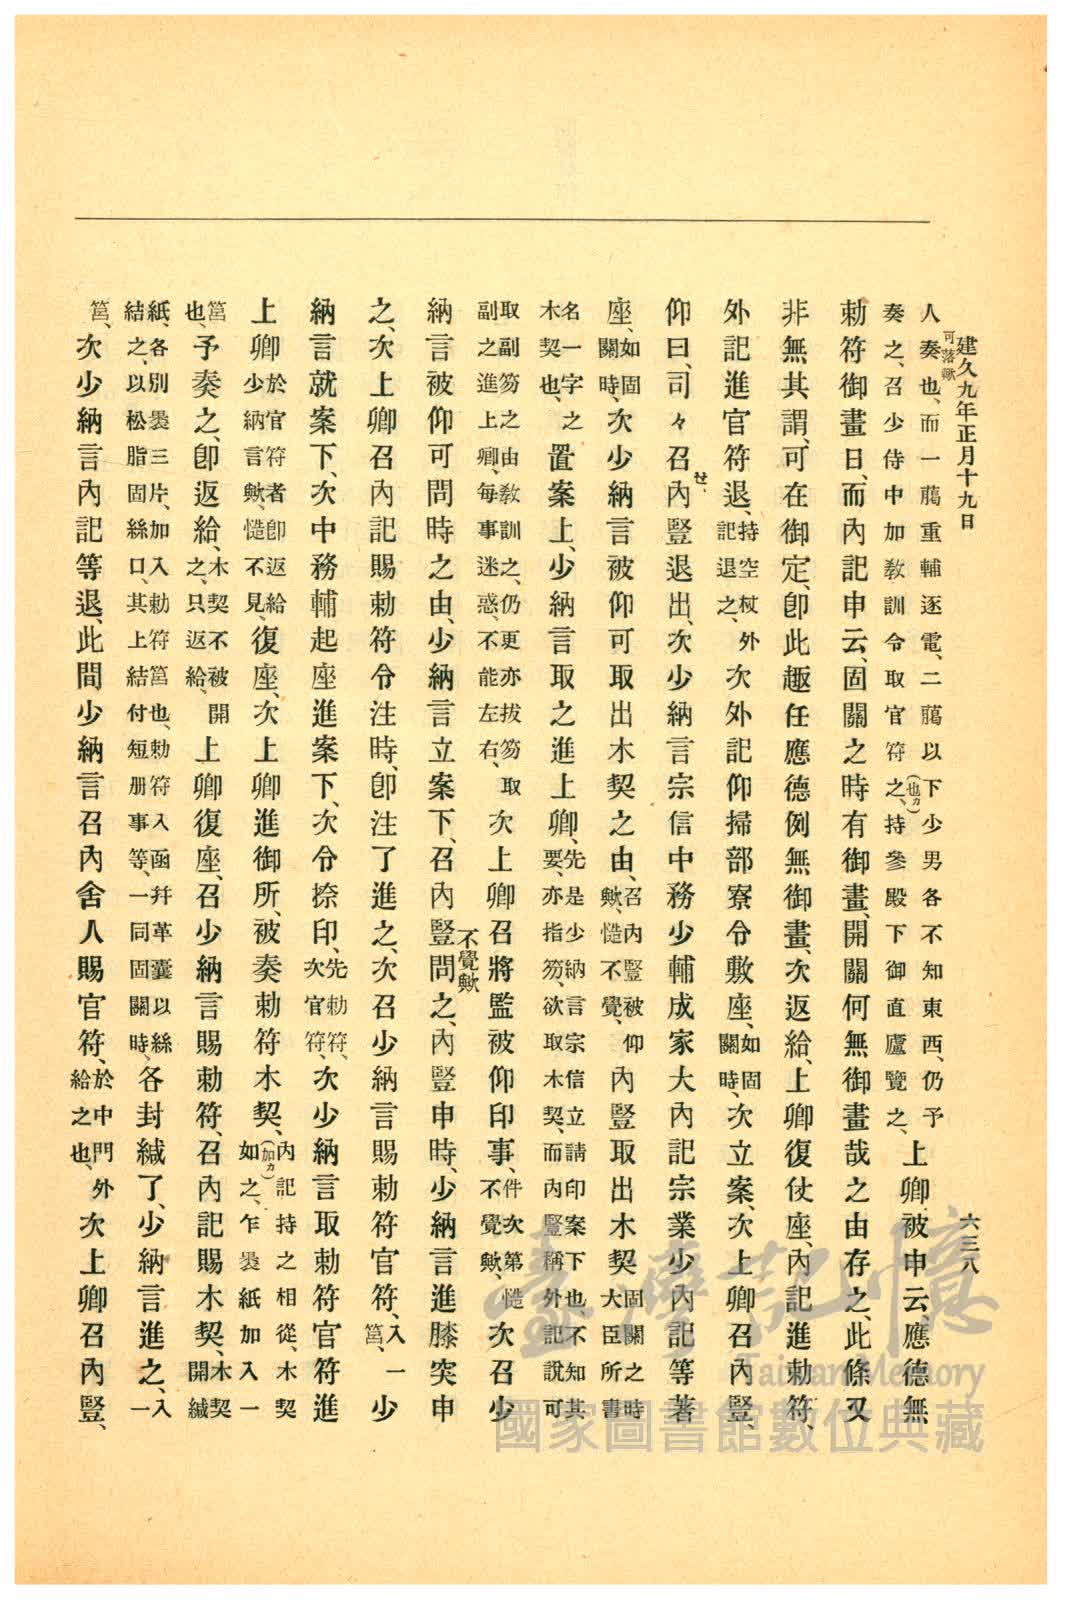 建久九年正月十九日
六三八
人奏也、而一﨟重輔逐電、二﨟以下少男各不知東西、仍予
可落歟
奏之、召少侍中加教訓令取官符之、持參殿下御直廬覽之、
(也カ)
上卿被申云應德無
勅符御畫日、而內記申云、固關之時有御畫、開關何無御畫哉之由存之、此條又
非無其謂、可在御定、卽此趣任應德例無御畫、次返給、上卿復仗座、內記進勅符、
外記進官符退、
持空杖外
記退之、
次外記仰掃部寮令敷座、
如固
關時、
次立案、次上卿召內豎、
仰曰、司々召
セ、
內豎退出、次少納言宗信中務少輔成家大內記宗業少內記等著
座、
如固
關時、
次少納言被仰可取出木契之由、
召內豎被仰
歟、慥不覺、
內豎取出木契
固關之時
大臣所書
名一字之
木契也、
置案上、少納言取之進上卿、
先是少納言宗信立請印案下也、不知其
要、亦指笏、欲取木契、而內豎稱外記說可
取副笏之由教訓之、仍更亦拔笏取
副之進上卿、每事迷惑、不能左右、
次上卿召將監被仰印事、
件次第慥
不覺歟、
次召少
納言被仰可問時之由、少納言立案下、召內豎問之、
不覺歟
內豎申時、少納言進膝突申
之、次上卿召內記賜勅符令注時、卽注了進之、次召少納言賜勅符官符、
入一
筥、
少
納言就案下、次中務輔起座進案下、次令捺印、
先勅符、
次官符、
次少納言取勅符官符進
上卿
於官符者卽返給
少納言歟、慥不見、
復座、次上卿進御所、被奏勅符木契、
內記持之相從、木契
如之、乍裹紙加入一
(加カ)
筥
也、
予奏之、卽返給、
木契不被開
之、只返給、
上卿復座、召少納言賜勅符、召內記賜木契、
木契
開緘
紙、各別裹三片、加入勅符筥也、勅符入函幷革囊以絲
結之、以松脂固絲口、其上結付短册事等、一同固關時、
各封緘了、少納言進之、
入
一
筥、
次少納言內記等退、此間少納言召內舍人賜官符、
於中門外
給之也、
次上卿召內豎、
臺灣記憶
Taiwan Memory
國家圖書館數位典藏